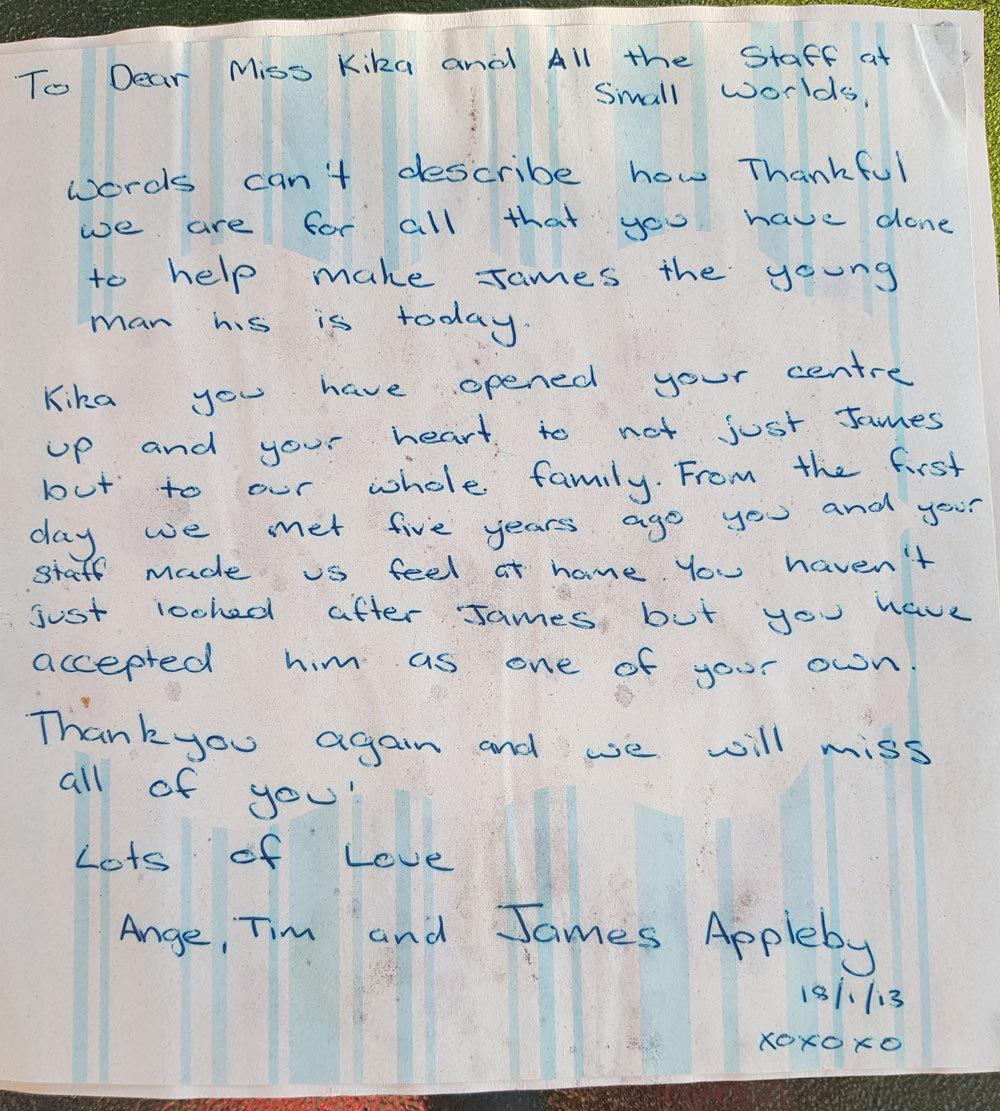 To Dear Miss Kika and All the Staff at
Small Worlds,
Words can't describe how Thankful
we are for all that you have done
to help make James the young
man his is today.
Kika you have opened your centre
up and your heart to not just James
but to our whole family. From the first
day we met five years ago you and your
staff made us feel at home. You haven't
just looked after James but you have
accepted him as one of your own.
Thankyou again and we will miss
all of you!
Lots of Love
Ange, Tim and James Appleby
18/1/13
xoxoxo